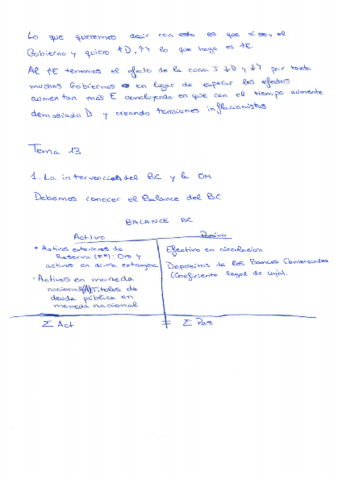 Lo que queremos decir con esto es que si soy el
Gobierno y quiero ↑D, ↑Y lo que hago es ↑E
Al ↑E tenemos el efecto de la curva J ↓D y ↓Y por tanto
muchos Gobiernos en lugar de esperar los efectos
aumentan más E concluyendo en que con el tiempo aumente
demasiado D y creando tensiones inflacionistas
Tema 13
1. La intervención del BC y la OM
Debemos conocer el Balance del BC
BALANCE BC
Activo
Pasivo
• Activos exteriores de
Reserva (R*): Oro y
activos en divisa extranjera
• Activos en moneda
nacional (A): Títulos de
deuda pública en
moneda nacional
Efectivo en circulación
Depósitos de los Bancos Comerciales
(Coeficiente legal de
Σ Act = Σ Pas